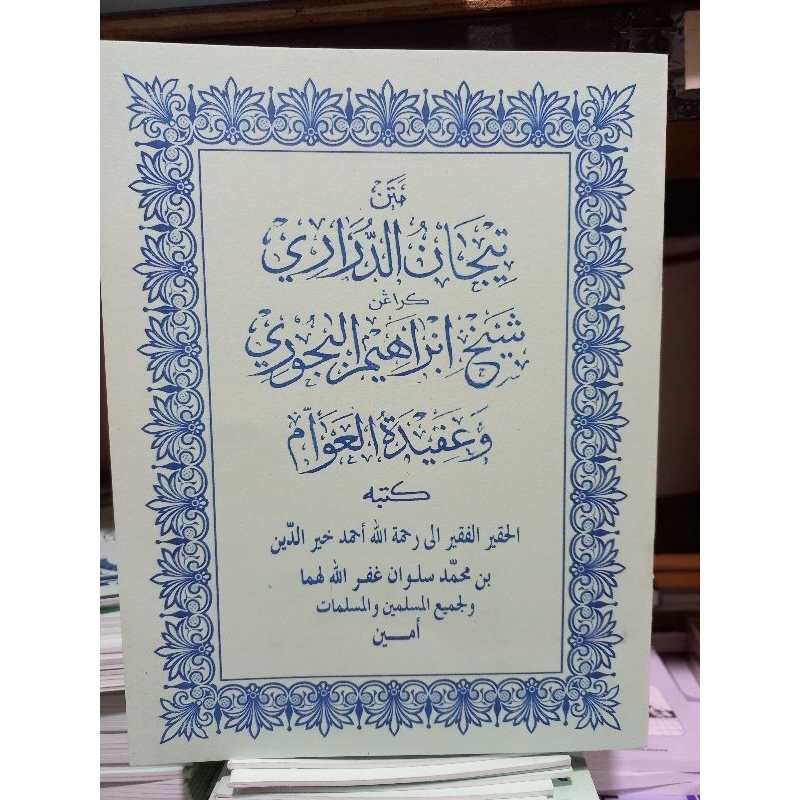 مَتَن
تِيْجَانُ الدَّرَارِي
كراڠن
شَيْخ اِبْرَاهِيْم البَجُوْرِي
وَعَقِيْدَةُ العَوَام
كتبه
الحقير الفقير الى رحمة الله أحمد خير الدّين
بن محمّد سلوان غفر الله لهما
ولجميع المسلمين والمسلمات
أمــين